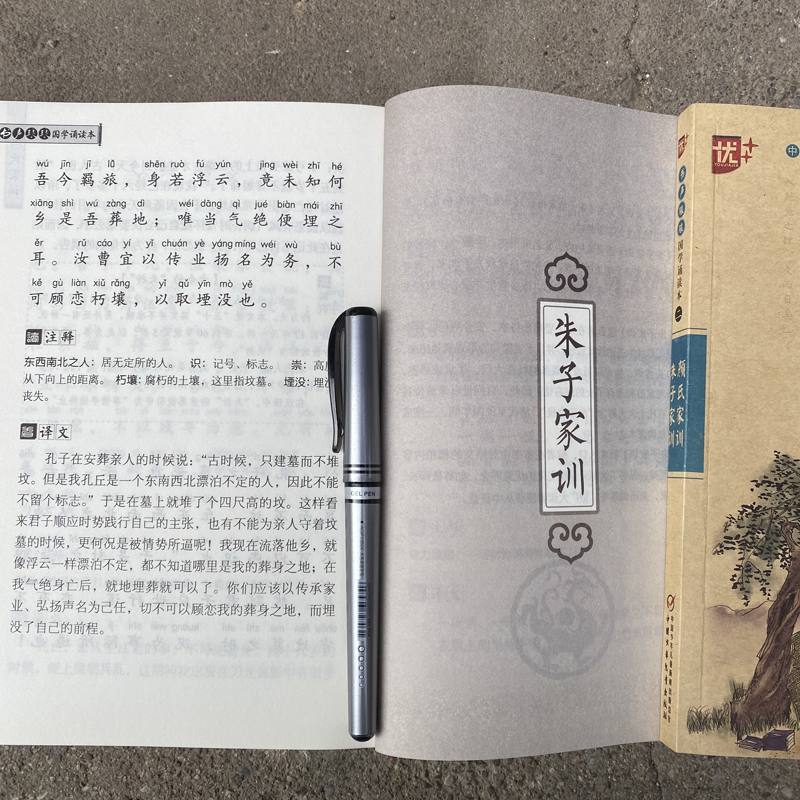 国学诵读本
wú jīn jī lǚ shēn ruò fú yún jìng wèi zhī hé
吾今羁旅，身若浮云，竟未知何
xiāng shì wú zàng dì wéi dāng qì jué biàn mái zhī
乡是吾葬地；唯当气绝便埋之
ěr rǔ cáo yí yǐ chuán yè yáng míng wéi wù bù
耳。汝曹宜以传业扬名为务，不
kě gù liàn xiǔ rǎng yǐ qǔ yīn mò yě
可顾恋朽壤，以取堙没也。
注释
东西南北之人：居无定所的人。 识：记号、标志。 崇：高
从下向上的距离。 朽壤：腐朽的土壤，这里指坟墓。 堙没：埋
丧失。
译文
孔子在安葬亲人的时候说：“古时候，只建墓而不堆
坟。但是我孔丘是一个东南西北漂泊不定的人，因此不能
不留个标志。”于是在墓上就堆了个四尺高的坟。这样看
来君子顺应时势践行自己的主张，也有不能为亲人守着坟
墓的时候，更何况是被情势所逼呢！我现在流落他乡，就
像浮云一样漂泊不定，都不知道哪里是我的葬身之地；在
我气绝身亡后，就地埋葬就可以了。你们应该以传承家
业、弘扬声名为己任，切不可以顾恋我的葬身之地，而埋
没了自己的前程。
GEL PEN
朱子家训
优
国学诵读本
二
颜氏家训
朱子家训
中国少年儿童出版社
优
YOUJIAJIA
中